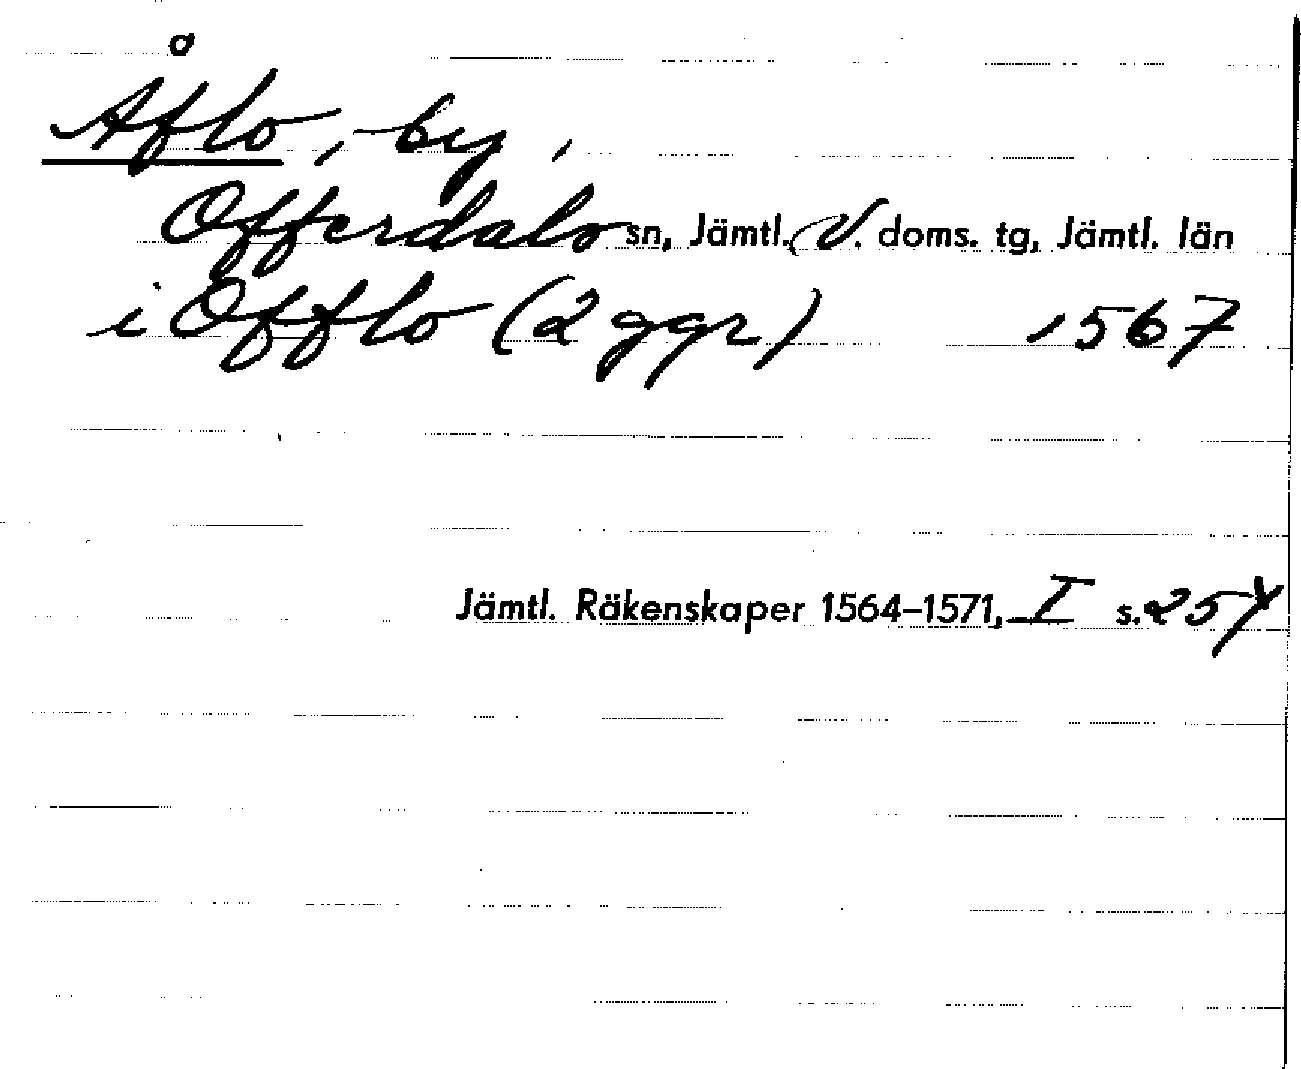 Åflo, by,
Offerdals sn, Jämtl. V. doms. tg, Jämtl. län
i Offlo (2 ggr) 1567
Jämtl. Räkenskaper 1564–1571, I s. 254